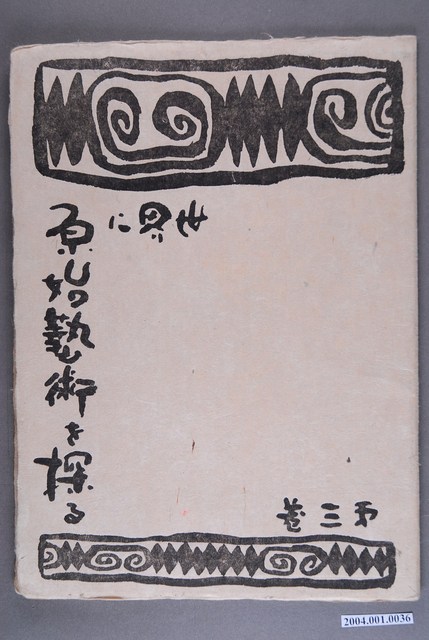 世界に
原始藝術を探る
第三巻
2004.001.0036